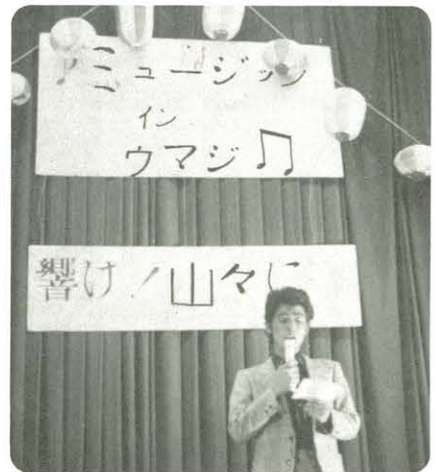 ♪ミュージック
イン
ウマジ♫
響け!山々に